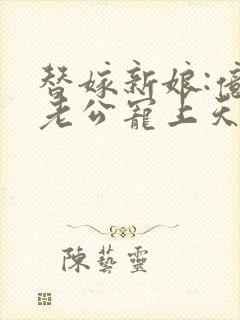 替嫁新娘:億
老公寵上天
陳藝靈